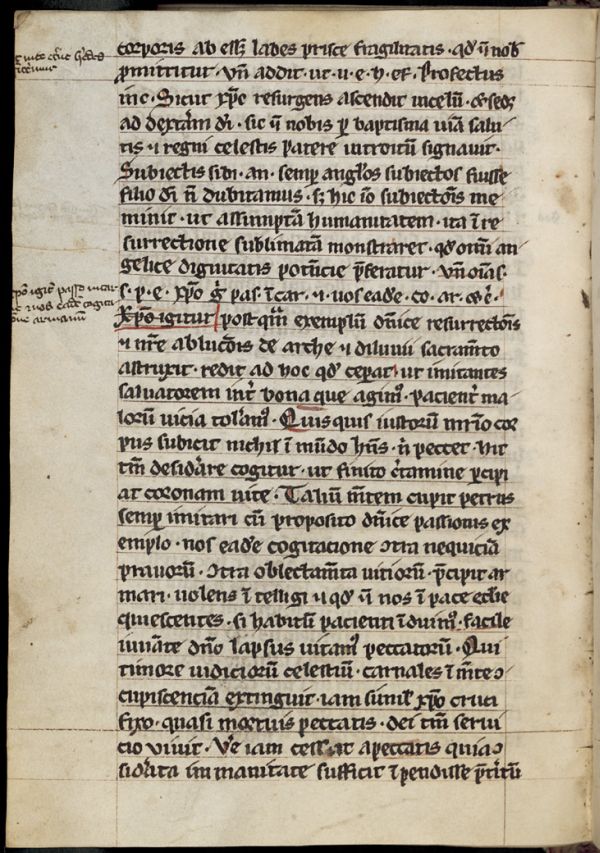 corporis ab esse labes prisce fragilitatis · qd' ū nob'
p̄mittitur · Vn̄ addit · ut · u · e · h · ef · Profectus
inc · Sicut xp̄c resurgens ascendit in celū · & sedꝫ
ad dext̄am dī · sic ū nobis p baptisma uiā salu
tis · ⁊ regni celestis patere introitū signauit ·
Subiectis sibi · an · semp anglos subiectos fuisse
filio dī n̄ dubitamus · sꝫ hic iō subiect̄ois me
minit · ut assumptā humanitatem · ita ī re
surrectione sublimatā monstraret · qd' om̄i an
gelice dignitatis potn̄cie p̄feratur · vn̄ oīa s ·
s · p · e · xp̄o ḡ pas · ī car · ⁊ uos eade · co · ar ·
Xp̄o igitur post qm̄ exemplū dn̄ice resurrect̄ois
⁊ nr̄e abluc̄ois de arche ⁊ diluuii sacram̄to
astruxit · redit ad hoc qd' ceperat · ut imitantes
saluatorem int' bona que agim' · pacient' ma
lorū uicia toleram' · Quisquis iustorū cor
pus subicit nichil ī mūdo hn̄s · n̄ peccet · ut
tm̄ desid'are cogitur · ut finito c'tamine p̄cipi
at coronam uite · Taliū m̄tem cupit petrus
semp imitari cū proposito dn̄ice passionis ex
emplo · nos eade cogitacione ɔtra nequiciā
prauorū · ɔtra oblectam̄ta uitiorū · p̄cipit ar
mari · uolens ītelligi ⁊ qd' ū nos ī pace eccl'ie
quiescentes · si habitū pacienti īduim' · facile
iuuāte dn̄o lapsus uitam' peccatorū · Qui
timore iudiciorū celestiū · carnales ī m̄te ɔ
cupiscenciā extinguit · iam simil' xp̄o cruci
fixo · quasi mortuis peccatis · dei tm̄ serui
cio uiuit · Ve iam cess at a peccatis quia ɔ
sid'ata immanitate sufficit īpendisse p̄t'itū